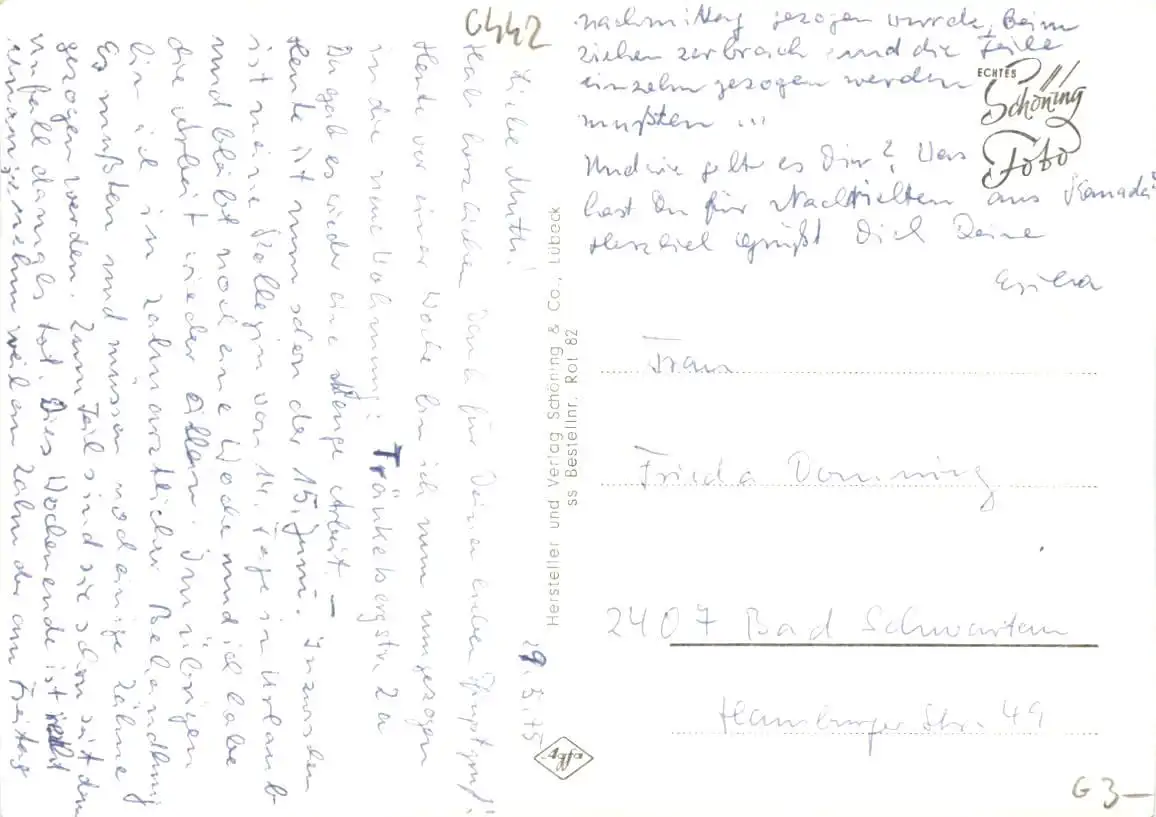 C442
29.5.75
Liebe Muthi!
Hab herzlichen Dank für Deine lieben Pfingstgrüße!
Heute vor einer Woche bin ich nun umgezogen
in die neue Wohnung: Fränkelsbergstr. 2a
Da gab es wieder eine Menge Arbeit. –
Heute ist nun schon der 15. Juni. Inzwischen
ist meine Kollegin von 14 Tage in Urlaub
und bleibt noch eine Woche und ich habe
die Arbeit wieder allein. Im übrigen
bin ich in zahnärztlicher Behandlung
Es mußten und müssen noch einige Zähne
gezogen werden. Zum Teil sind sie schon seit dem
Unfall damals tot. Dies Wochenende ist recht
unangenehm weil ein Zahn der am Freitag
nachmittag gezogen wurde, beim
ziehen zerbrach und die Teile
einzeln gezogen werden
mußten ...
Und wie geht es Dir? Was
hast Du für Nachrichten aus Kanada?
Herzlich grüßt Dich Deine
Erika
ECHTES
Schöning
Foto
Hersteller und Verlag Schöning & Co., Lübeck
ss Bestellnr. Rot 82
Agfa
Frau
Frieda
2407 Bad Schwartau
Hamburger Str. 49
G 3–